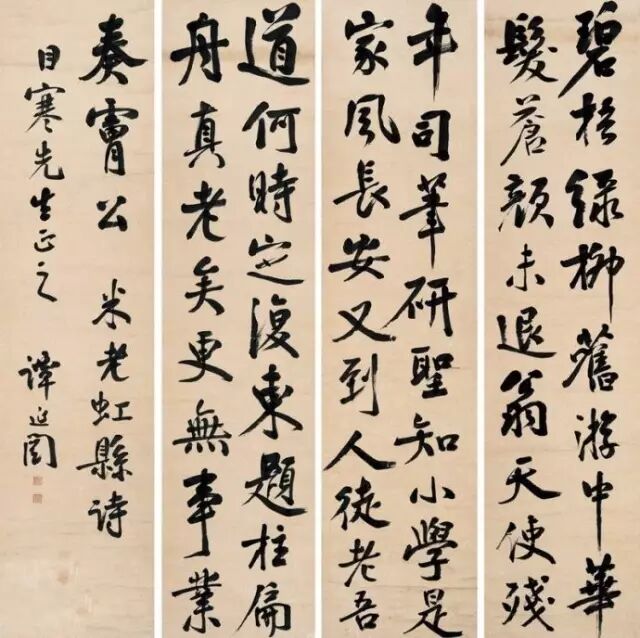 碧榆綠柳舊游中華
髮蒼顏未退翁天使殘
年司筆研聖知小學是
家風長安又到人徒老吾
道何時定復東題柱扁
舟真老矣更無事業
奏膚公 米老虹縣詩
目寒先生正之
譚延闓